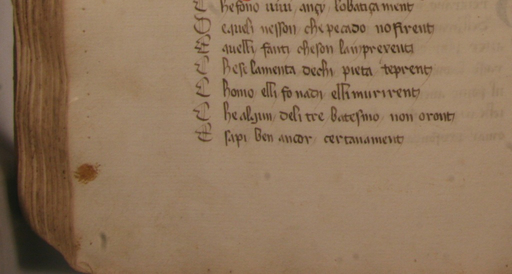 C he sono vivi ancor l obatiça ment
O equeli nesson che pecado no firent
E quelli santi che son la inprevent
C hese lamenta dechi pieta te prent
C homo elli fo nadi elli murirent
C he algun deli tre batesmo non oront
E sapi ben ancor certanament